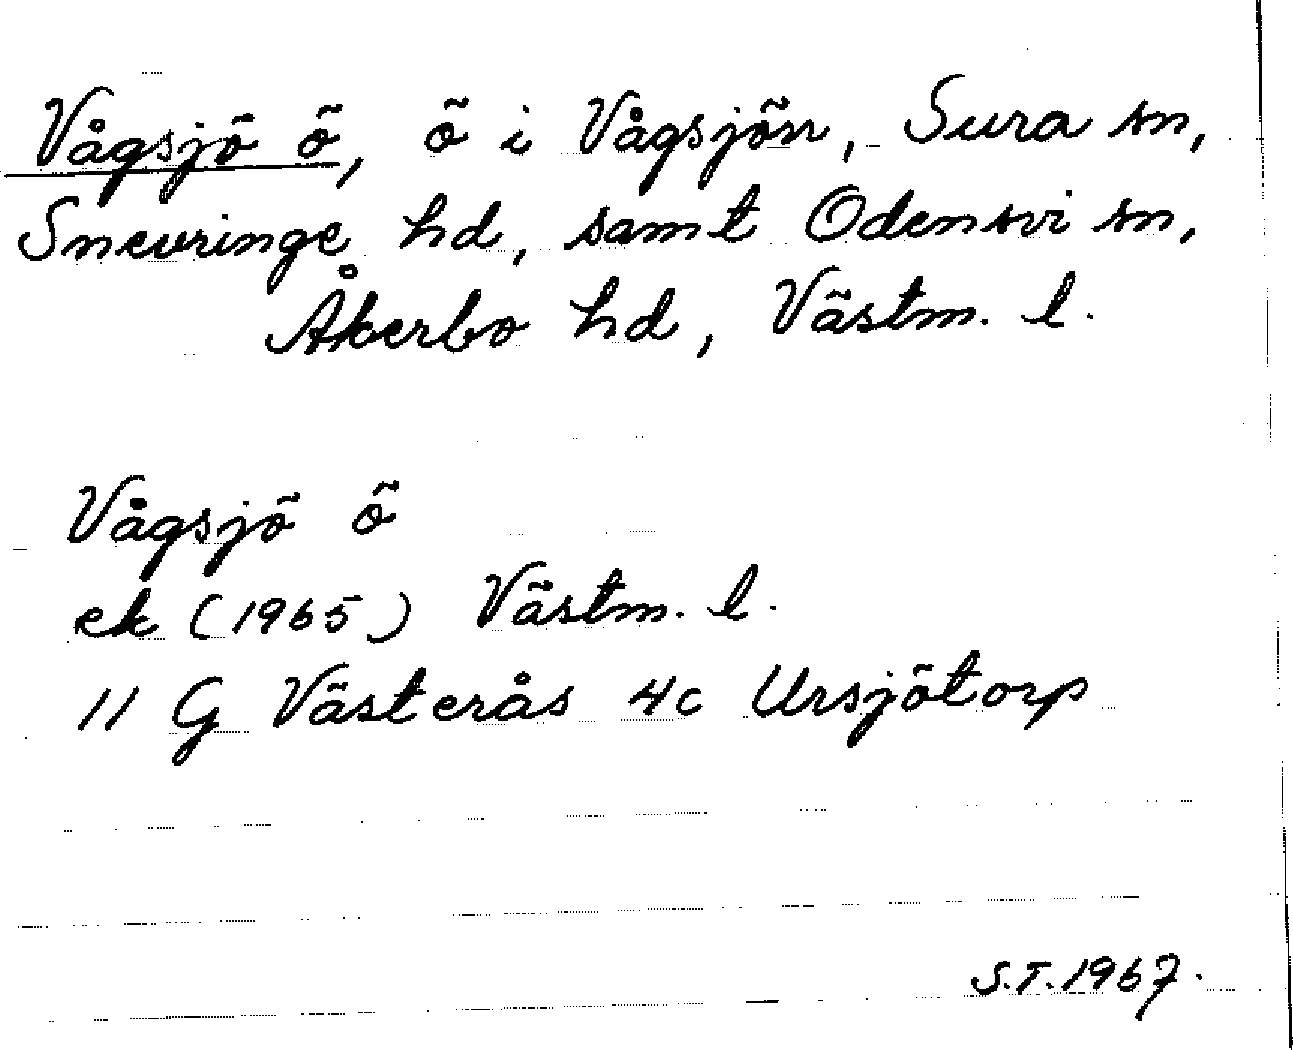 Vågsjö ö, ö i Vågsjön, Sura sn,
Snevringe hd, samt Odensvi sn,
Åkerbo hd, Västm. l.
Vågsjö ö
ek (1965) Västm. l.
11 G Västerås 4c Ursjötorp
S.T. 1967.